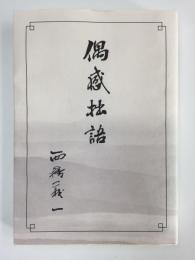 偶感拙語
西嶋義一